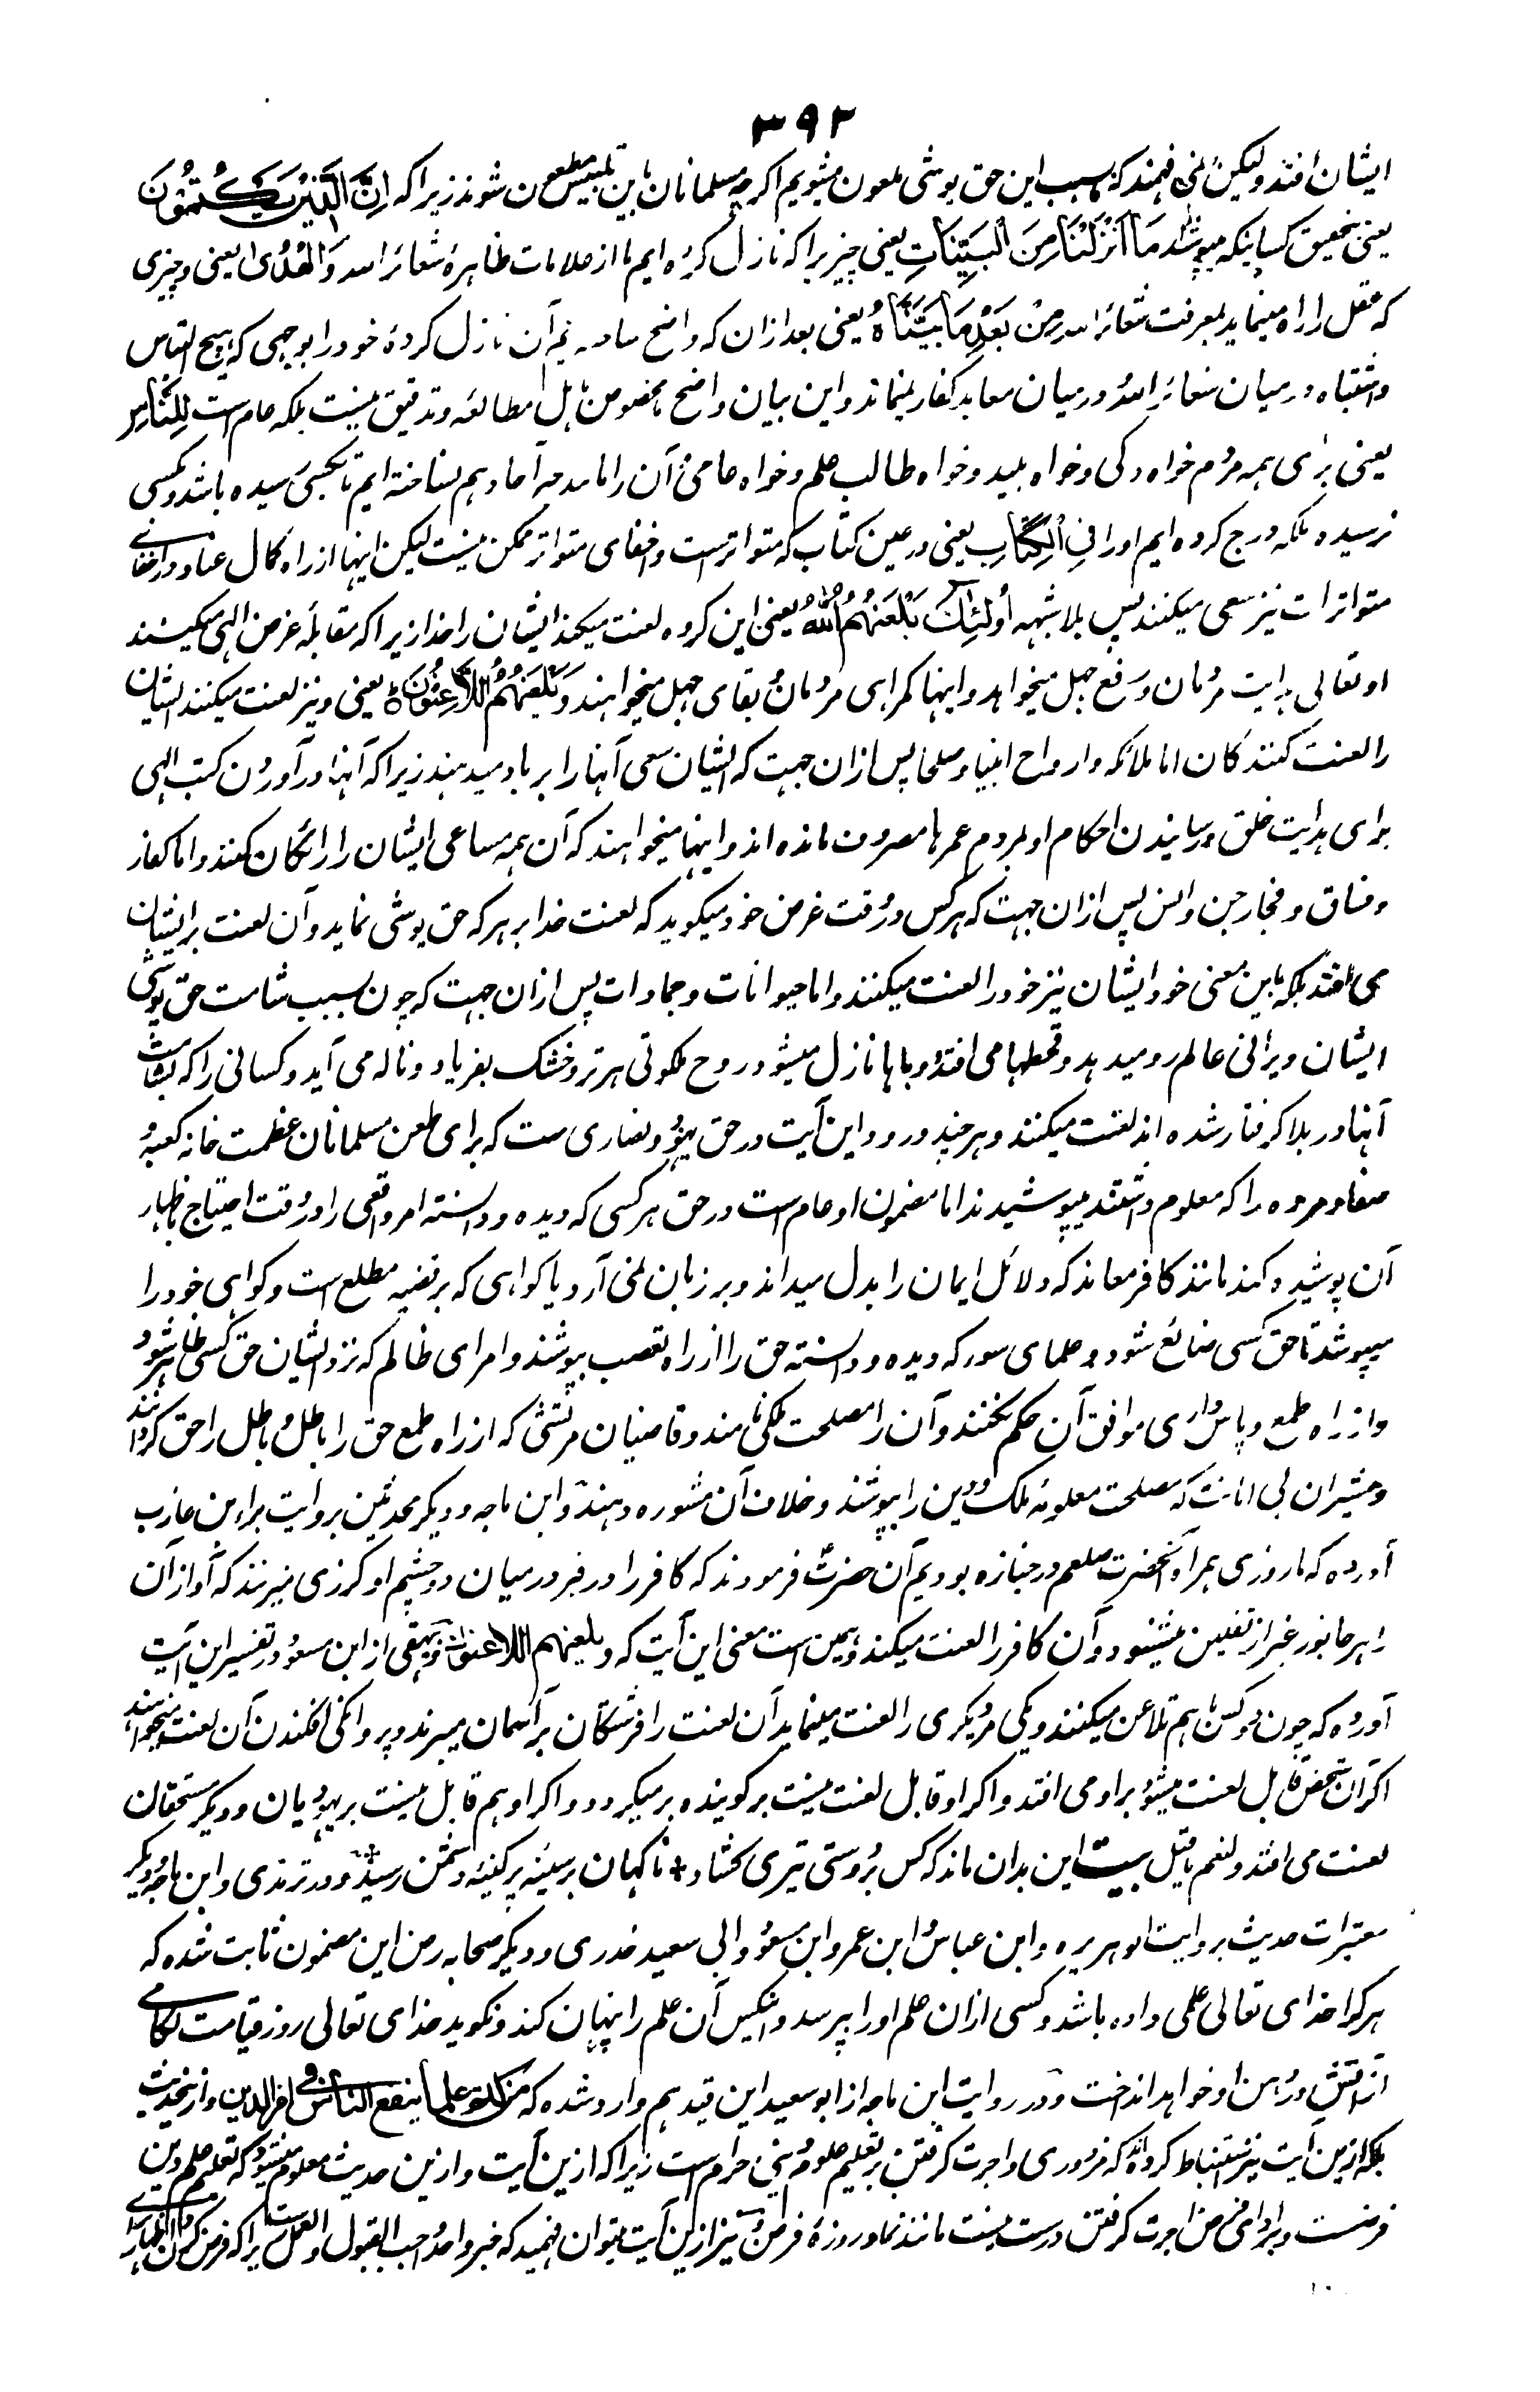 ۳۹۲
ایشان افتد ولیکن نمی فهمند که بسبب این حق پوشی ملعون میشویم اگرچه مسلمانان باین تلبیس مطعون شوند زیرا که اِنَّ الَّذِیْنَ یَکْتُمُوْنَ
یعنی بتحقیق کسانیکه میپوشند مَا اَنْزَلْنَا مِنَ الْبَیِّنَاتِ یعنی چیزیرا که نازل کرده ایم ما از علامات ظاهرۀ شعائر الله وَالْهُدٰی یعنی و چیزی
که عقل را راه مینماید بمعرفت شعائر الله مِنْ بَعْدِ مَا بَیَّنَّاهُ یعنی بعد ازان که واضح ساخته ایم آن نازل کردۀ خود را بوجهی که هیچ التباس
واشتباه در میان شعائر الله و در میان معابد کفار نمیماند و این بیان واضح مخصوص باهل مطالعه و تدقیق نیست بلکه عام است لِلنَّاسِ
یعنی برای همه مردم خواه ذکی و خواه بلید و خواه طالب علم و خواه عامی و آن را ما مدحه آحاد هم نساخته ایم تا بکسی رسیده باشد و بکسی
نرسیده بلکه درج کرده ایم اورا فِی الْکِتَابِ یعنی در عین کتاب که متواتر است و اخفای متواتر ممکن نیست لیکن اینها از راه کمال عناد در اخفای
متواترات نیز سعی میکنند پس بلا شبهه اُولٰئِکَ یَلْعَنُهُمُ اللّٰهُ یعنی این گروه لعنت میکند ایشان را خدا زیرا که مقابلۀ غرض الهی میکنند
او تعالی هدایت مردمان و رفع جهل میخواهد و اینها گمراهی مردمان و بقای جهل میخواهند وَیَلْعَنُهُمُ اللَّاعِنُوْنَ یعنی و نیز لعنت میکنند ایشان
را لعنت کنندگان اما ملائکه و ارواح انبیا و صلحا پس ازان جهت که ایشان سعی آنها را برباد میدهند زیرا که آنها در آوردن کتب الهی
برای هدایت خلق و رسانیدن احکام او بمردم عمرها مصروف مانده اند و اینها میخواهند که آن همه مساعی ایشان را رائگان کنند و اما کفار
و فساق و فجار جن و انس پس ازان جهت که هر کس در وقت غرض خود میگوید که لعنت خدا بر هر که حق پوشی نماید و آن لعنت بر ایشان
می افتد بلکه باین معنی خود ایشان نیز خود را لعنت میکنند و اما حیوانات و جمادات پس ازان جهت که چون بسبب شامت حق پوشی
ایشان ویرانی عالم رو میدهد و قحطها می افتد و وباها نازل میشود روح ملکوتی هر تر و خشک بفریاد و ناله می آید و کسانی را که بشامت
آنها در بلا گرفتار شده اند لعنت میکنند و هر چند ورود این آیت در حق یهود و نصاری ست که برای طعن مسلمانان عظمت خانه کعبه و
صفا و مروه را که معلوم داشتند میپوشیدند اما مضمون او عام است در حق هر کسی که دیده و دانسته امر واقعی را در وقت احتیاج باظهار
آن پوشیده کند مانند کافر معاند که دلائل ایمان را بدل میداند و بر زبان نمی آرد یا گواهی که بر قضیه مطلع است و گواهی خود را
میپوشد تا حق کسی ضائع شود و علمای سوء که دیده و دانسته حق را از راه تعصب بپوشند و امرای ظالم که نزد ایشان حق کسی ظاهر شود و
و از راه طمع و پاس داری موافق آن حکم نکنند و آن را مصلحت ملکی نامند و قاضیان مرتشی که از راه طمع حق را باطل و باطل را حق گردانند
و مشیران بی امانت که مصلحت معلومۀ ملک و دین را بپوشند و خلاف آن مشوره دهند و ابن ماجه و دیگر محدثین بروایت براء بن عازب
آورده که ما روزی همراه آنحضرت صلعم در جنازه بودیم آن حضرت ؐ فرمودند که کافر را در قبر در میان دو چشم او گرزی میزنند که آواز آن
را هر جانور غیر از ثقلین میشنود و آن کافر را لعنت میکند و همین است معنی این آیت که ویلعنهم اللاعنون و بیهقی از ابن مسعود در تفسیر این آیت
آورده که چون دو کس باهم تلاعن میکنند و یکی مر دیگری را لعنت مینماید آن لعنت را فرشتگان بر آسمان میبرند و پروانگی افکندن آن لعنت میخواهند
اگر آن شخص قابل لعنت میشود بر او می افتد و اگر او قابل لعنت نیست بر گوینده برمیگردد و اگر او هم قابل نیست بر یهودیان و دیگر مستحقان
لعنت می افتد و لنعم ما قیل بیت این بدان ماند که کس بر دوستی تیری کشاد * ناگهان بر سینۀ پر کینۀ دشمن رسید * و در ترمذی و ابن ماجه و دیگر
معتبرات حدیث بروایت ابو هریره و ابن عباس و ابن عمر و ابن مسعود و ابی سعید خدری و دیگر صحابه رض این مضمون ثابت شده که
هر کرا خدای تعالی علمی داده باشد و کسی ازان علم اورا بپرسد و آنکس آن علم را پنهان کند و نگوید خدای تعالی روز قیامت لگامی
از آتش در دهن او خواهد انداخت و در روایت ابن ماجه از ابو سعید این قید هم وارد شده که من کتم علما ینفع الناس فی امر الدین و ازینحدیث
بلکه ازین آیت نیز استنباط کرده اند که مزدوری و اجرت گرفتن بر تعلیم علوم دینی حرام است زیرا که ازین آیت و ازین حدیث معلوم میشود که تعلیم علم دین
فرضست و بر ادای فرض اجرت گرفتن درست نیست مانند نماز و روزۀ فرض و نیز ازین آیت میتوان فهمید که خبر واحد واجب القبول و العمل است زیرا که فرض گردانیدن اظهار